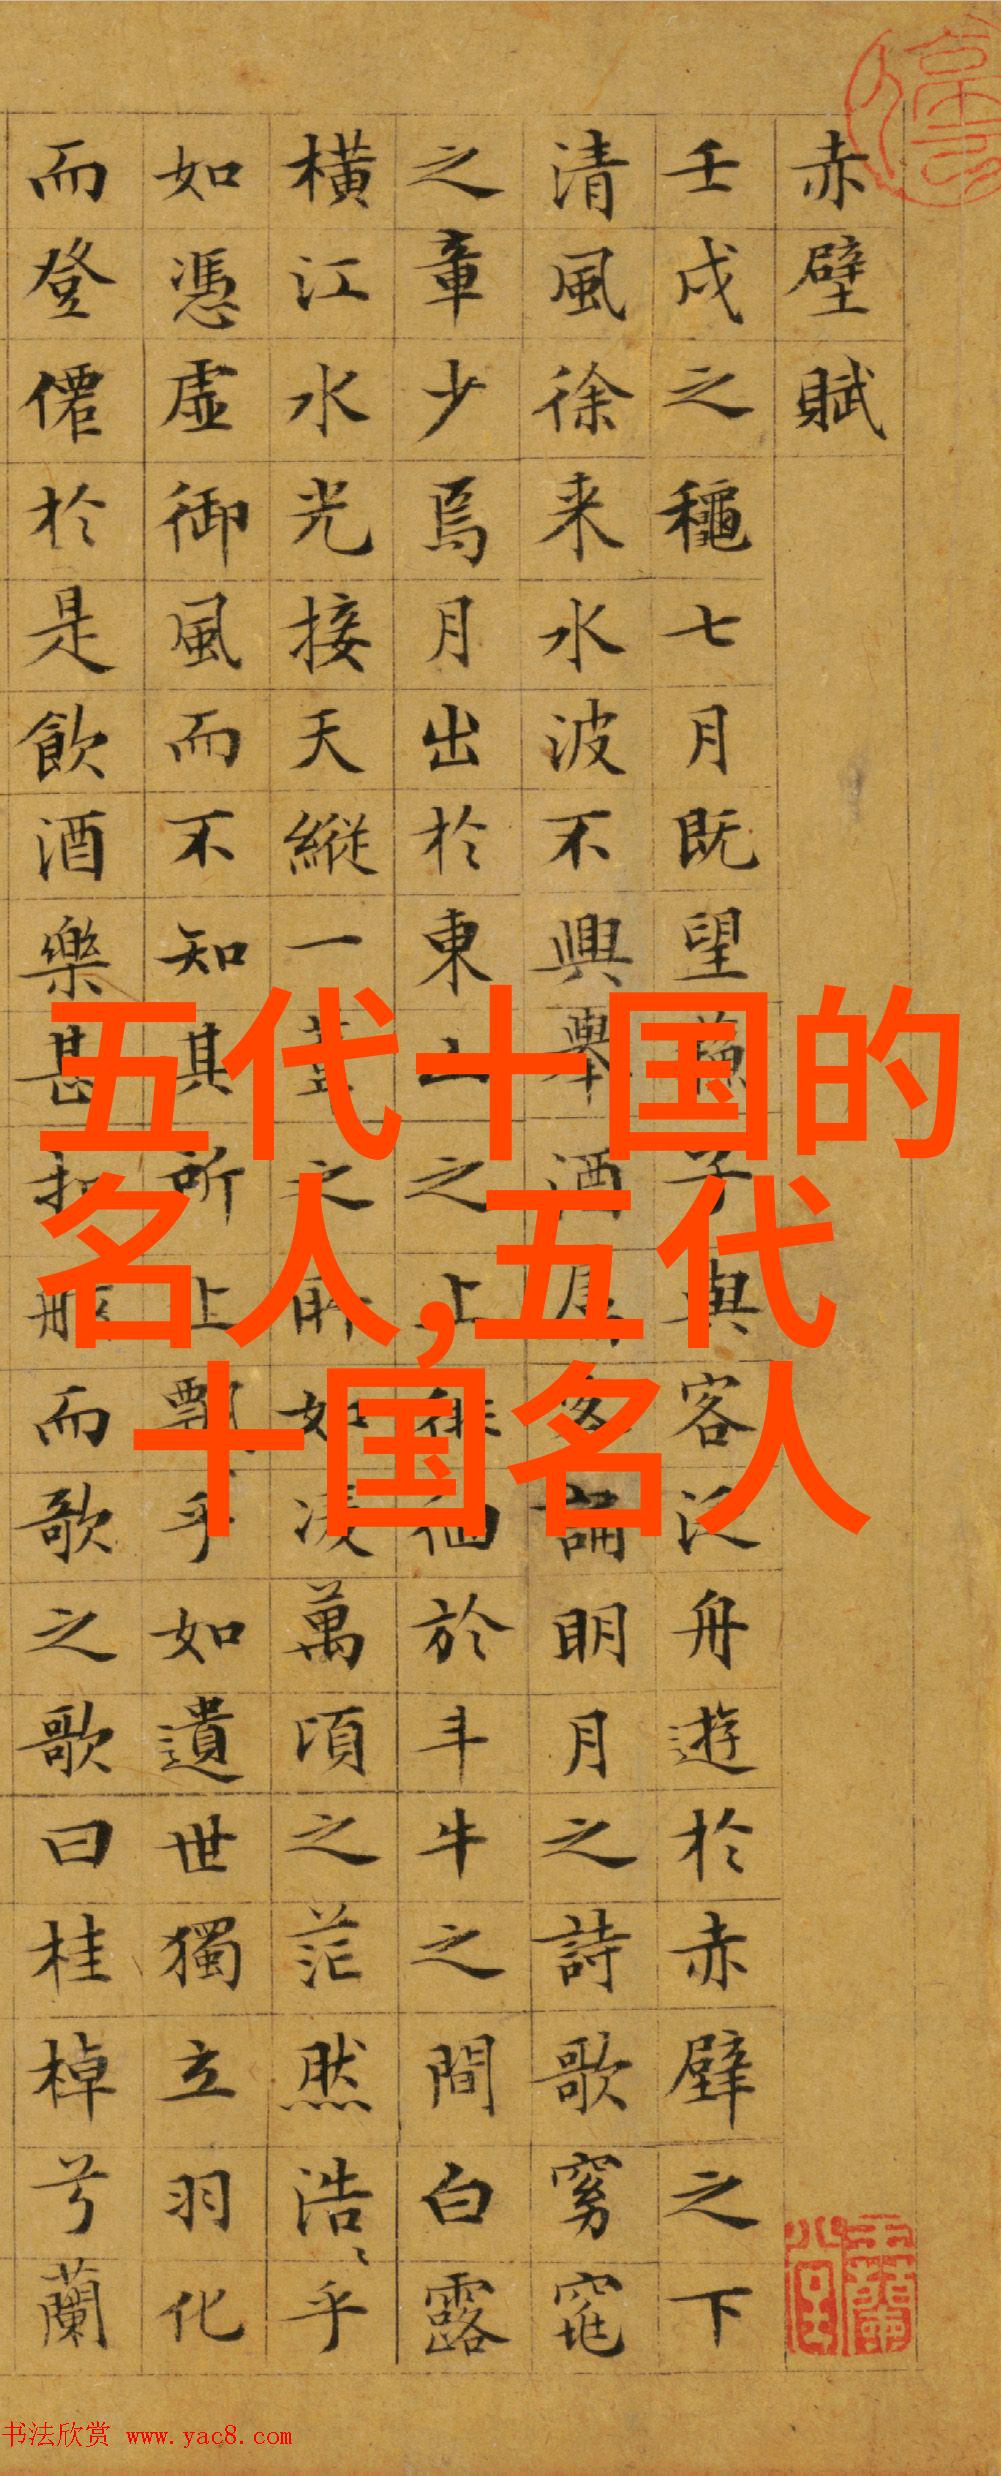 赤壁賦
壬戌之龝七月既望子與客泛舟遊於赤壁之下
清風徐来水波不興舉酒客誦眀月之詩歌窈窕
之章少焉月出於東山之上徘徊於斗牛之間白露
横江水光接天縱一葦之所如凌萬頃之茫然浩〻乎
如憑虛御風而不知其所止飄乎如遺世獨立羽化
而登僊於是飲酒樂甚扣舷而歌之歌曰桂棹兮蘭
五代十国的
名人,五代
十国名人
书法欣赏 www.yac8.com